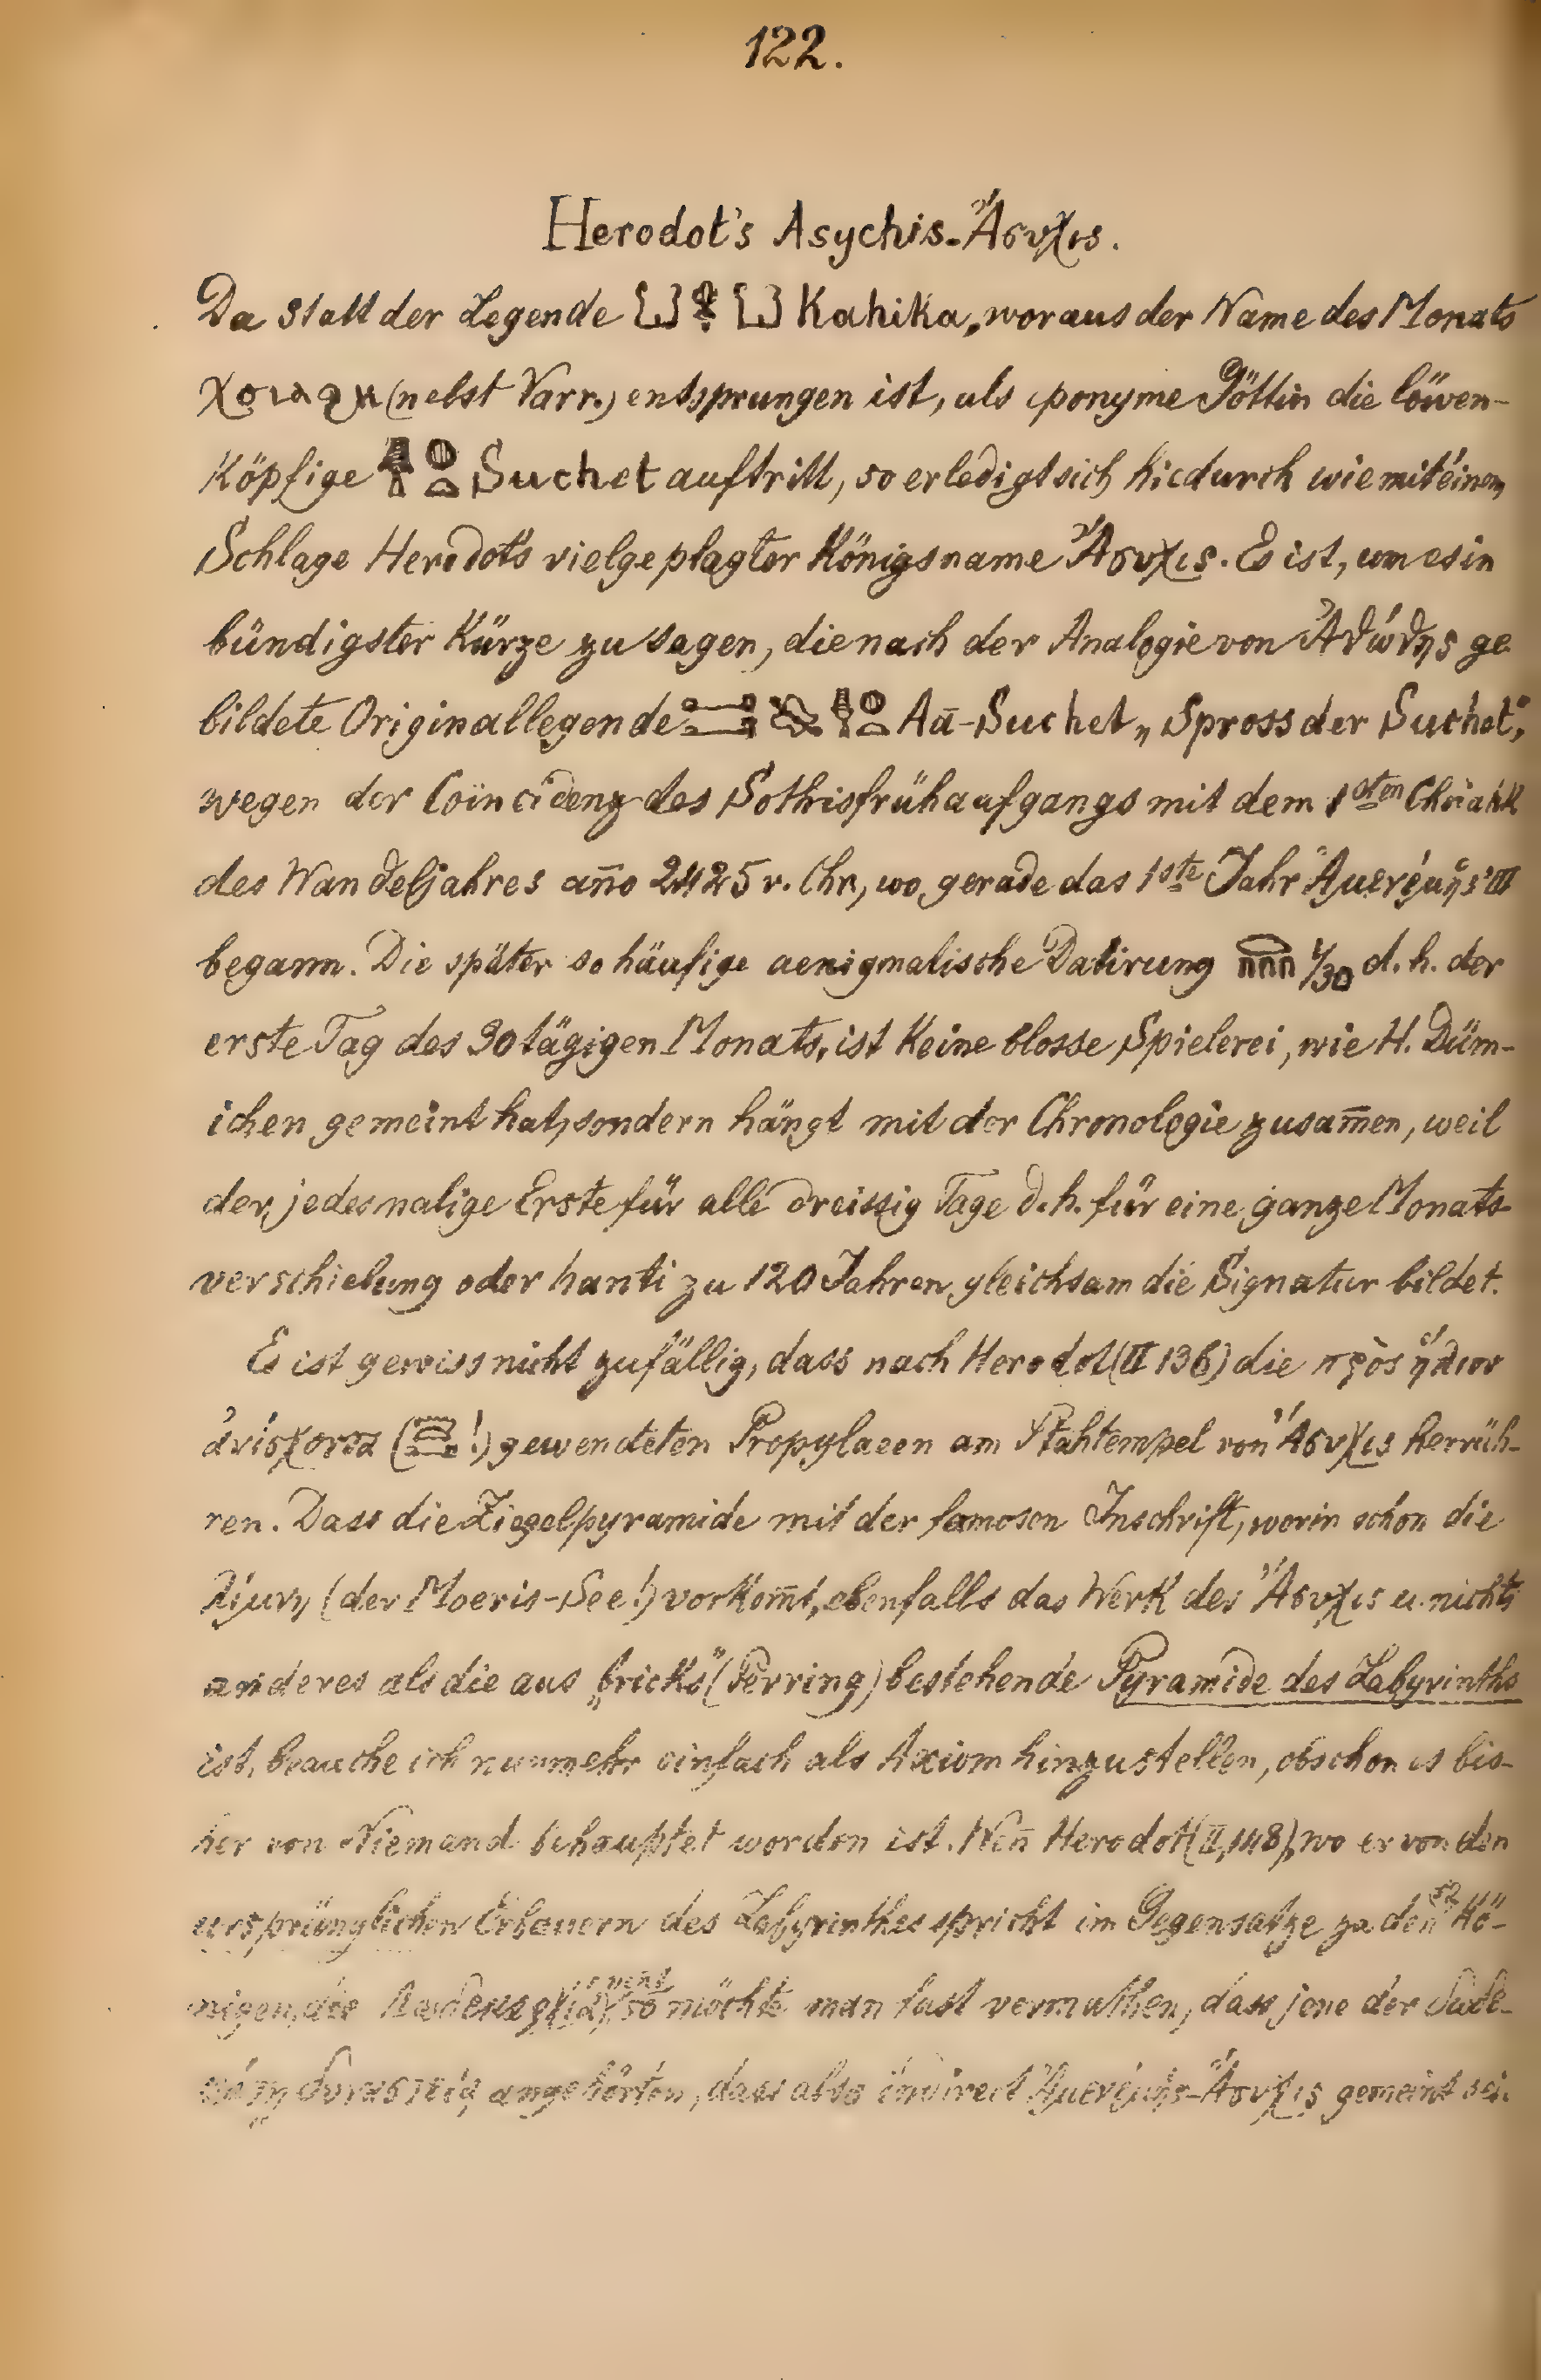 122.
Herodot's Asychis-Ἄσυχις.
Da statt der Legende Kahika, woraus der Name des Monats
Χοιαϩκ (nebst Varr.) entsprungen ist, als eponyme Göttin die löwen-
köpfige Suchet auftritt, so erledigt sich hiedurch wie mit éinem
Schlage Herodots vielgeplagter Königsname Ἄσυχις. Es ist, um es in
bündigster Kürze zu sagen, die nach der Analogie von Ἀθώθης ge
bildete Originallegende Aā-Suchet „Spross der Suchet",
wegen der Coïncidenz des Sothisfrühaufgangs mit dem 1sten Choiahk
des Wandeljahres año 2425 v. Chr., wo gerade das 1ste Jahr Ἀμενέμης' III
begann. Die später so häufige aenigmatische Datirung 1/30 d. h. der
erste Tag des 30tägigen Monats, ist keine blosse Spielerei, wie H. Düm-
ichen gemeint hat, sondern hängt mit der Chronologie zusam̄en, weil
der jedesmalige Erste für alle dreissig Tage d. h. für eine ganze Monats-
verschiebung oder hanti zu 120 Jahren gleichsam die Signatur bildet.
Es ist gewiss nicht zufällig, dass nach Herodot (II 136) die πρὸς ἥλιον
ἀνίσχοντα (!) gewendeten Propylaeen am Ptahtempel von Ἄσυχις herrüh-
ren. Dass die Ziegelpyramide mit der famosen Inschrift, worin schon die
λίμνη (der Moeris-See!) vorkom̄t, ebenfalls das Werk des Ἄσυχις u. nichts
anderes als die aus „bricks" (Perring) bestehende Pyramide des Labyrinths
ist, brauche ich nunmehr einfach als Axiom hinzustellen, obschon es bis-
her von Niemand behauptet worden ist. Wen̄ Herodot (II, 148), wo er von den
ursprünglichen Erbauern des Labyrinthes spricht im Gegensatze zu den 12 Kö-
nigen, die so möchte man fast vermuthen, dass jene der δωδε-
κάτη δυναστείᾳ angehörten, dass also indirect Ἀμενέμης-Ἄσυχις gemeint sei.